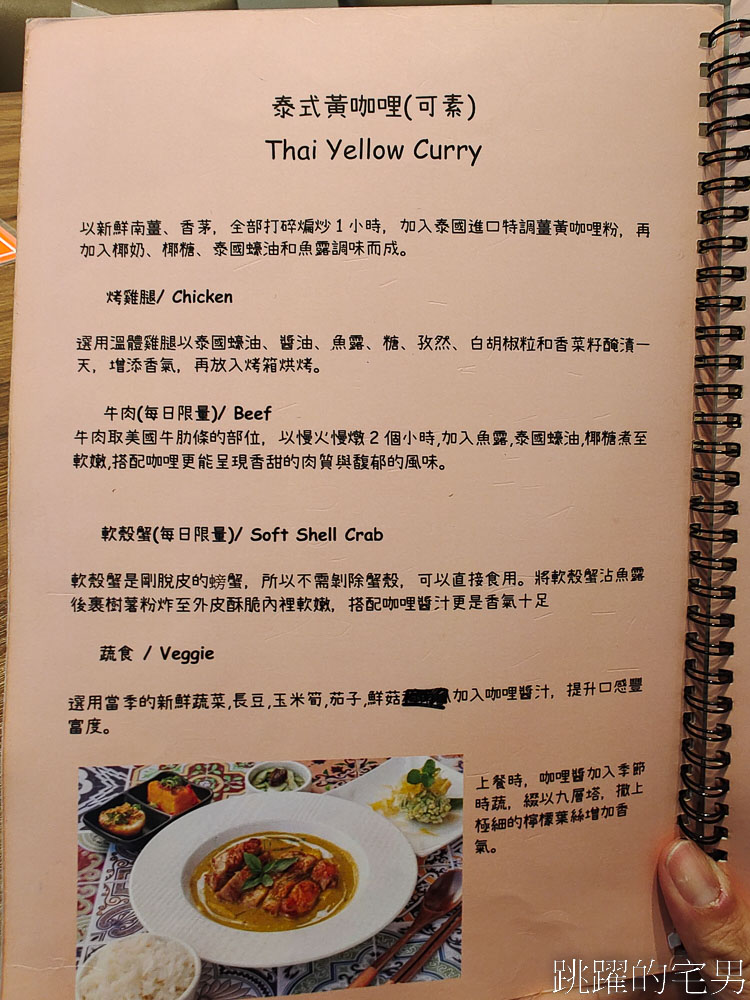 泰式黃咖哩(可素)
Thai Yellow Curry
以新鮮南薑、香茅，全部打碎煸炒1小時，加入泰國進口特調薑黃咖哩粉，再
加入椰奶、椰糖、泰國蠔油和魚露調味而成。
烤雞腿/ Chicken
選用溫體雞腿以泰國蠔油、醬油、魚露、糖、孜然、白胡椒粒和香菜籽醃漬一
天，增添香氣，再放入烤箱烘烤。
牛肉(每日限量)/ Beef
牛肉取美國牛肋條的部位，以慢火慢燉2個小時,加入魚露,泰國蠔油,椰糖煮至
軟嫩,搭配咖哩更能呈現香甜的肉質與馥郁的風味。
軟殼蟹(每日限量)/ Soft Shell Crab
軟殼蟹是剛脫皮的螃蟹，所以不需剝除蟹殼，可以直接食用。將軟殼蟹沾魚露
後裹樹薯粉炸至外皮酥脆內裡軟嫩，搭配咖哩醬汁更是香氣十足
蔬食 / Veggie
選用當季的新鮮蔬菜,長豆,玉米筍,茄子,鮮菇加入咖哩醬汁，提升口感豐
富度。
上餐時，咖哩醬加入季節
時蔬，綴以九層塔，撒上
極細的檸檬葉絲增加香
氣。
跳躍的宅男